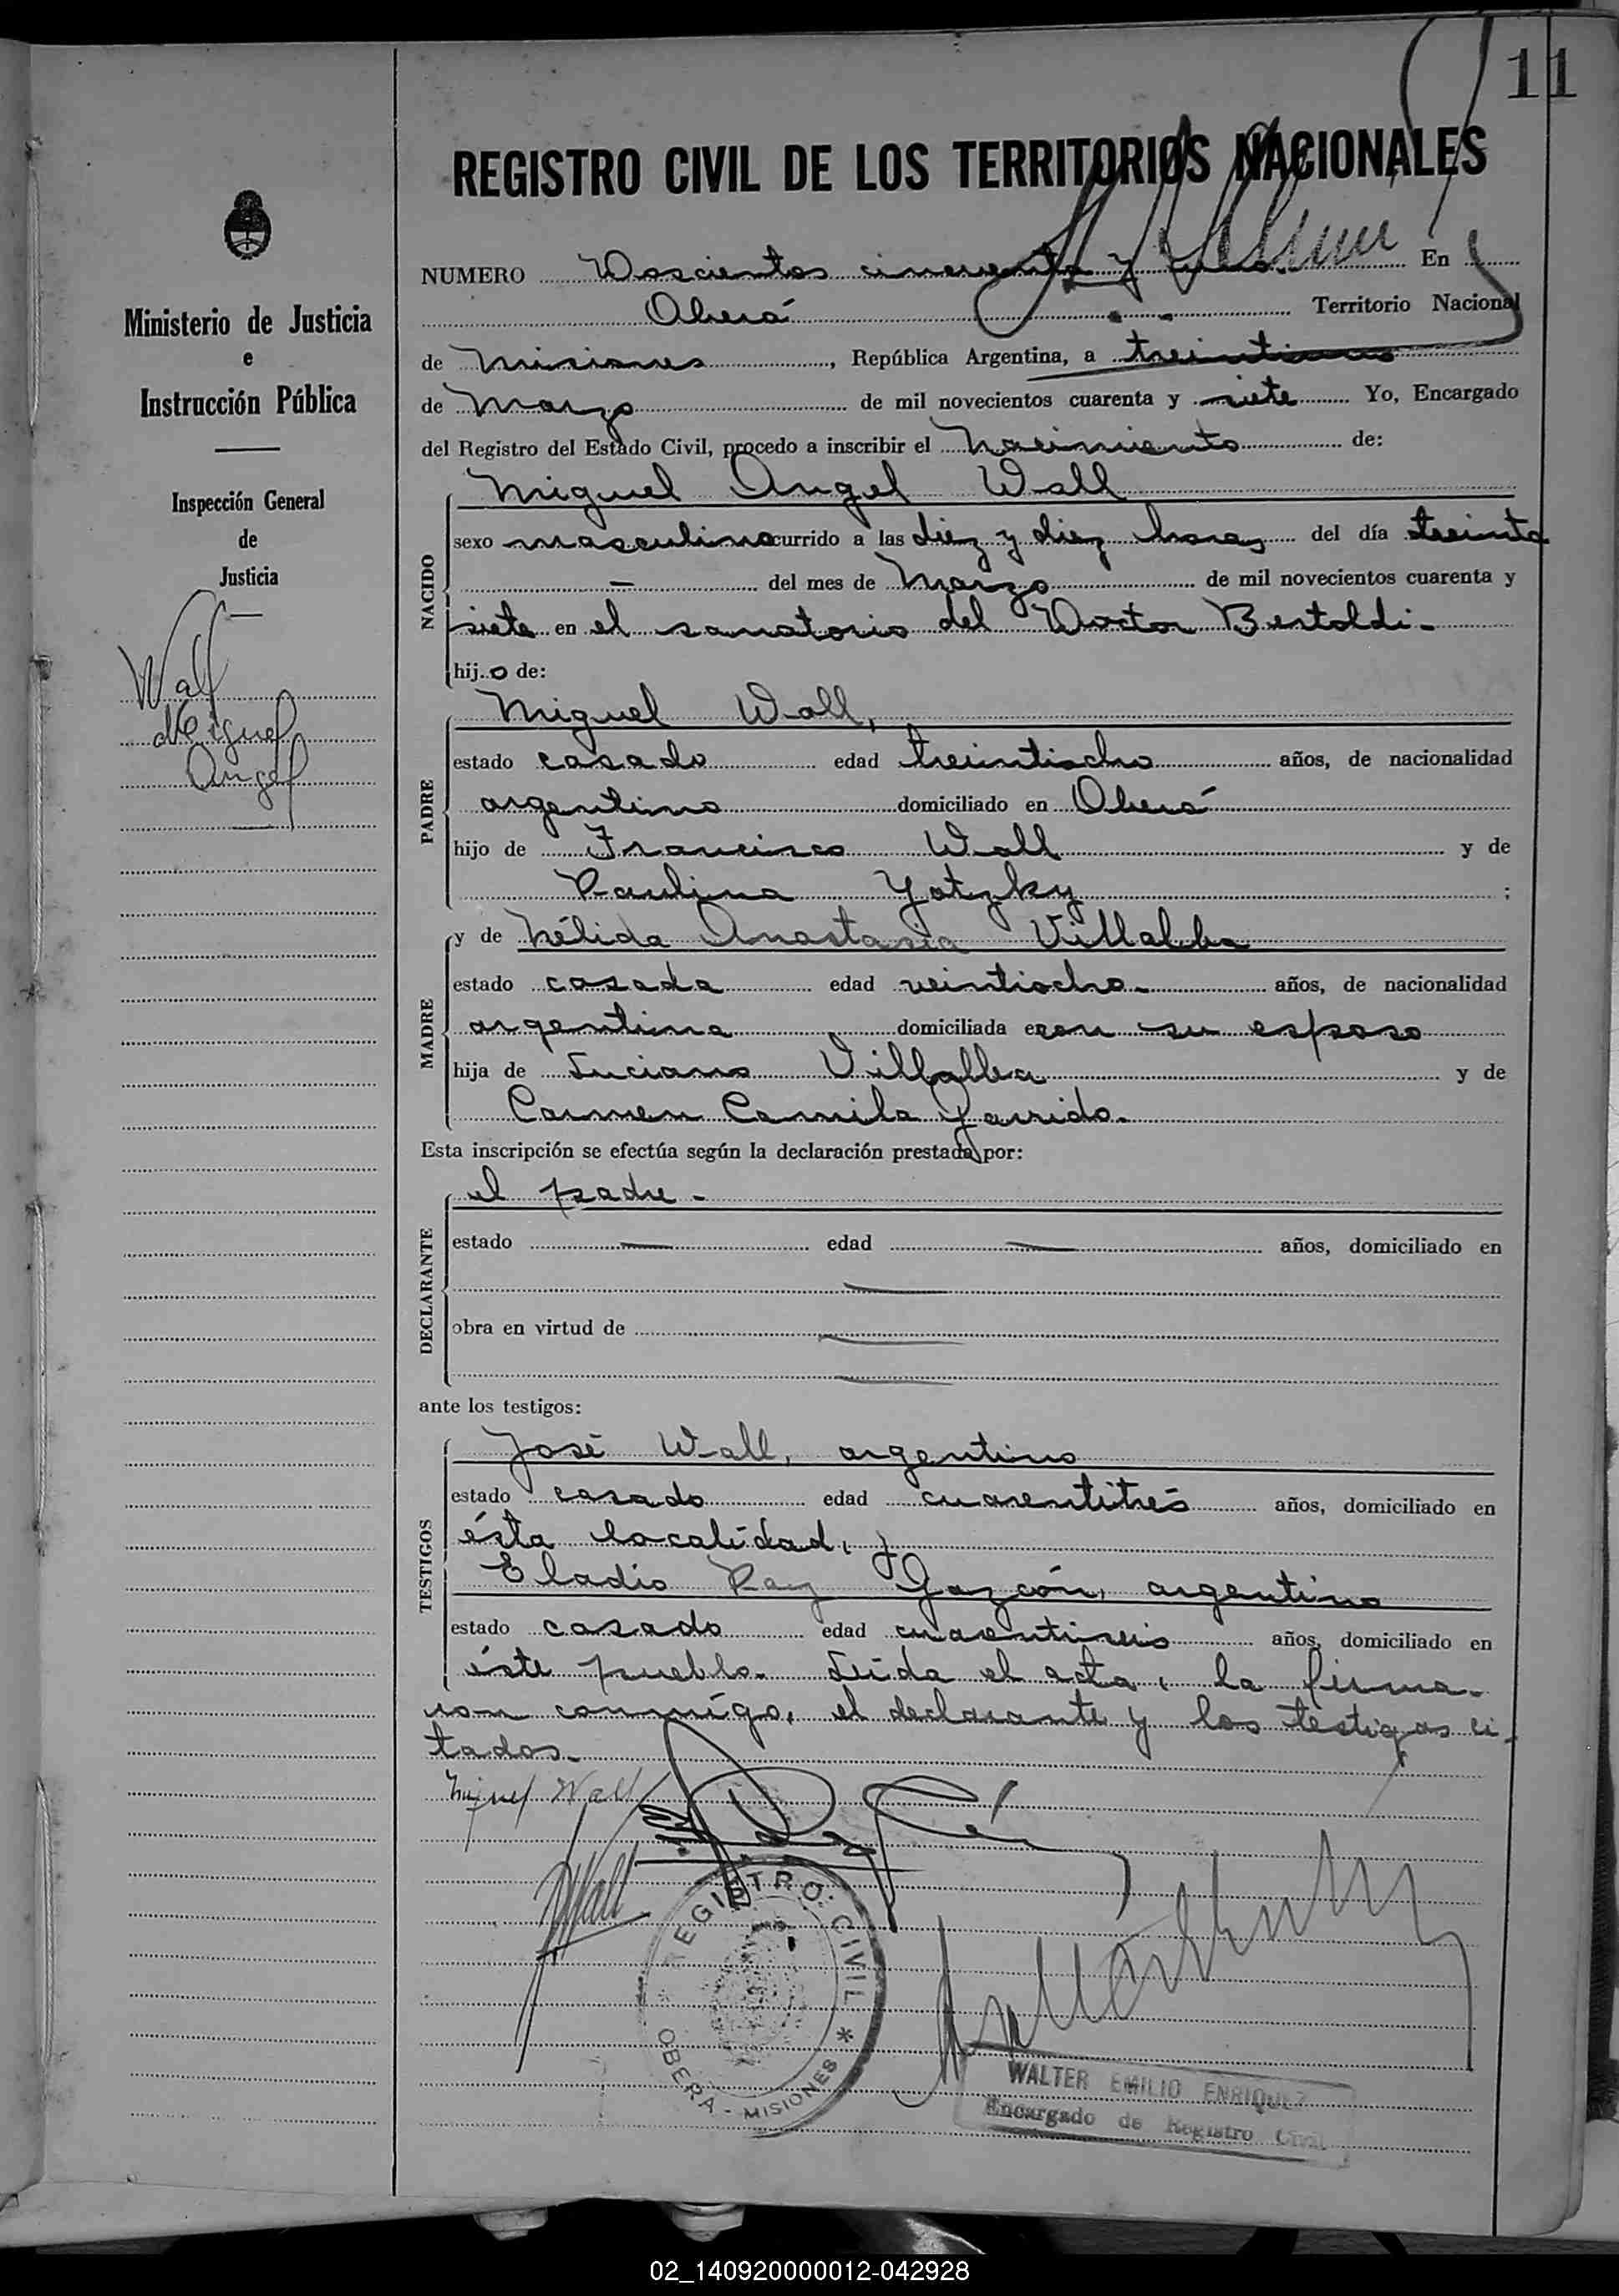 11
REGISTRO CIVIL DE LOS TERRITORIOS NACIONALES
NUMERO Doscientos cincuenta y En
Oberá Territorio Nacional
de Misiones, República Argentina, a treintiuno
de Marzo de mil novecientos cuarenta y siete Yo, Encargado
del Registro del Estado Civil, procedo a inscribir el Nacimiento de:
Ministerio de Justicia
e
Instrucción Pública
Inspección General
de
Justicia
Wall
Miguel
Angel
NACIDO
Miguel Angel Wall
sexo masculino ocurrido a las diez y diez horas del día treinta
— del mes de Marzo de mil novecientos cuarenta y
siete en el sanatorio del Doctor Bertoldi-
hijo de:
PADRE
Miguel Wall,
estado casado edad treintiocho años, de nacionalidad
argentino domiciliado en Oberá
hijo de Francisco Wall y de
Paulina Yatzky ;
MADRE
y de Nélida Anastasia Villalba
estado casada edad veintiocho- años, de nacionalidad
argentina domiciliada con su esposo
hija de Luciano Villalba y de
Carmen Camila Garrido.
Esta inscripción se efectúa según la declaración prestada por:
DECLARANTE
el padre -
estado — edad — años, domiciliado en
—
obra en virtud de —
—
ante los testigos:
TESTIGOS
José Wall, argentino
estado casado edad cuarentitrés años, domiciliado en
ésta localidad, y
Eladio Paz Gazcón, argentino
estado casado edad cuarentiseis años, domiciliado en
éste pueblo. Leída el acta, la firma-
ron conmigo, el declarante y los testigos ci-
tados-
Miguel Wall
JWall
REGISTRO CIVIL
* OBERA - MISIONES *
WALTER EMILIO ENRIQUEZ
Encargado de Registro Civil
02_140920000012-042928